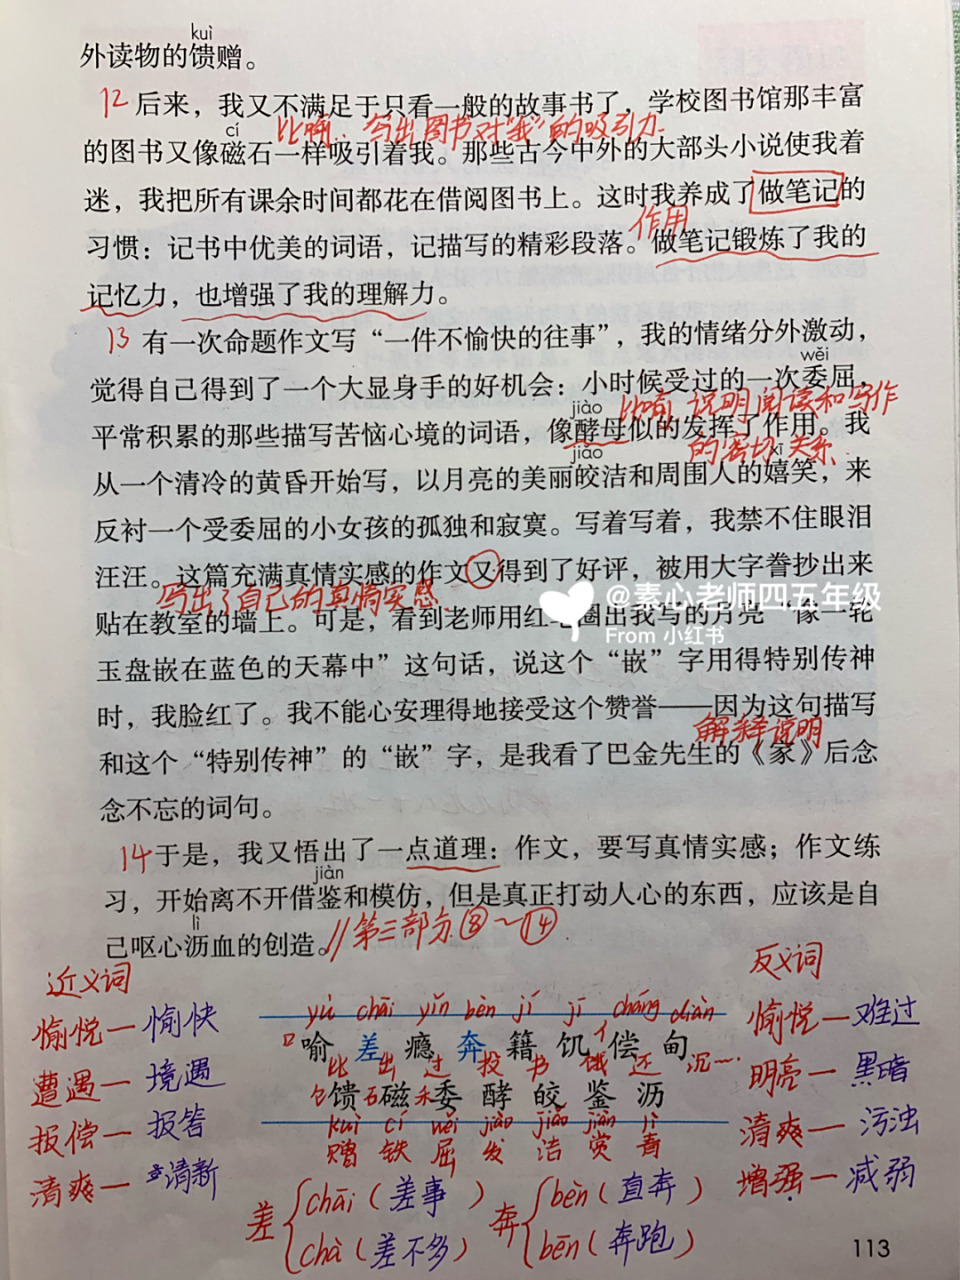 kuì
外读物的馈赠。
12 后来，我又不满足于只看一般的故事书了，学校图书馆那丰富
cí 比喻，写出图书对“我”的吸引力
的图书又像磁石一样吸引着我。那些古今中外的大部头小说使我着
迷，我把所有课余时间都花在借阅图书上。这时我养成了做笔记的
作用
习惯：记书中优美的词语，记描写的精彩段落。做笔记锻炼了我的
记忆力，也增强了我的理解力。
13 有一次命题作文写“一件不愉快的往事”，我的情绪分外激动，
wěi
觉得自己得到了一个大显身手的好机会：小时候受过的一次委屈，
jiào 比喻 说明阅读和写作
平常积累的那些描写苦恼心境的词语，像酵母似的发挥了作用。我
jiǎo 的密切关系 xī
从一个清冷的黄昏开始写，以月亮的美丽皎洁和周围人的嬉笑，来
反衬一个受委屈的小女孩的孤独和寂寞。写着写着，我禁不住眼泪
汪汪。这篇充满真情实感的作文又得到了好评，被用大字誊抄出来
写出了自己的真情实感
@素心老师四五年级
From 小红书
贴在教室的墙上。可是，看到老师用红笔圈出我写的月亮“像一轮
玉盘嵌在蓝色的天幕中”这句话，说这个“嵌”字用得特别传神
时，我脸红了。我不能心安理得地接受这个赞誉——因为这句描写
解释说明
和这个“特别传神”的“嵌”字，是我看了巴金先生的《家》后念
念不忘的词句。
14 于是，我又悟出了一点道理：作文，要写真情实感；作文练
jiàn
习，开始离不开借鉴和模仿，但是真正打动人心的东西，应该是自
lì
己呕心沥血的创造。//第三部分⑧～⑭
近义词
愉悦—愉快
遭遇—境遇
报偿—报答
清爽—清新
yù chāi yǐn bèn jí jī cháng diàn
口 喻 差 瘾 奔 籍 饥 偿 甸
比 出 过 投 书 饿 还 沉…
饣 馈 石 磁 禾 委 酵 皎 鉴 沥
kuì cí wěi jiào jiǎo jiàn lì
赠 铁 屈 发 洁 赏 青
反义词
愉悦—难过
明亮—黑暗
清爽—污浊
增强—减弱
差 chāi（差事）
chà（差不多）
奔 bèn（直奔）
bēn（奔跑）
113